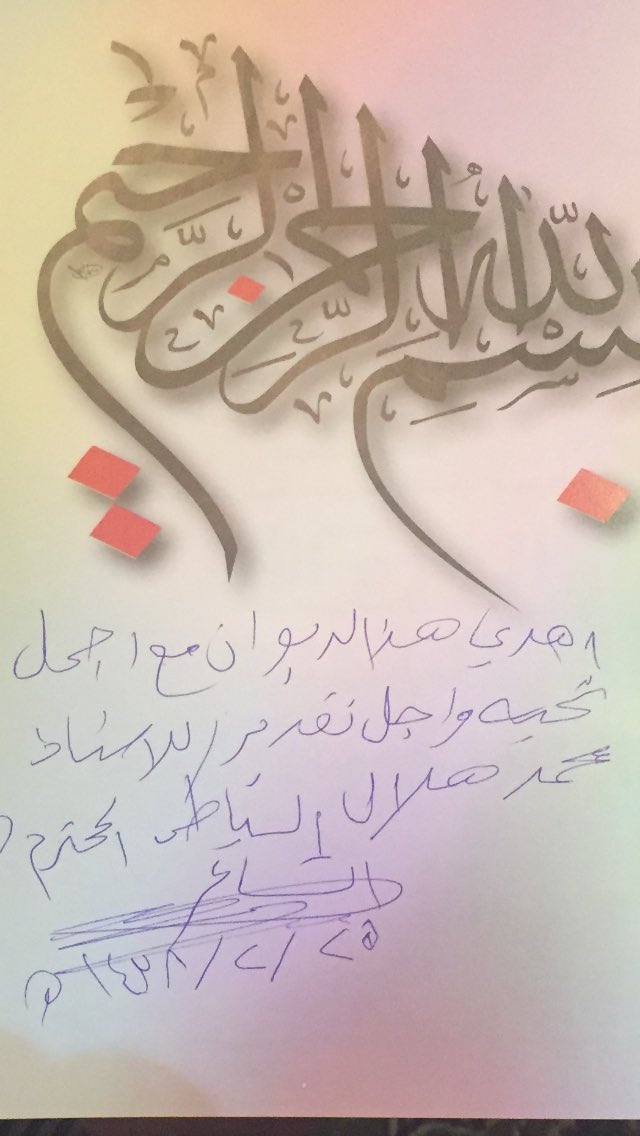 بسم الله الرحمن الرحيم
اهدي هذا الديوان مع اجمل
تحيه واجل تقدير للاستاذ
محمد هلال المحترم
الشاعر
١٤٣٨/٢/٢٥ هـ